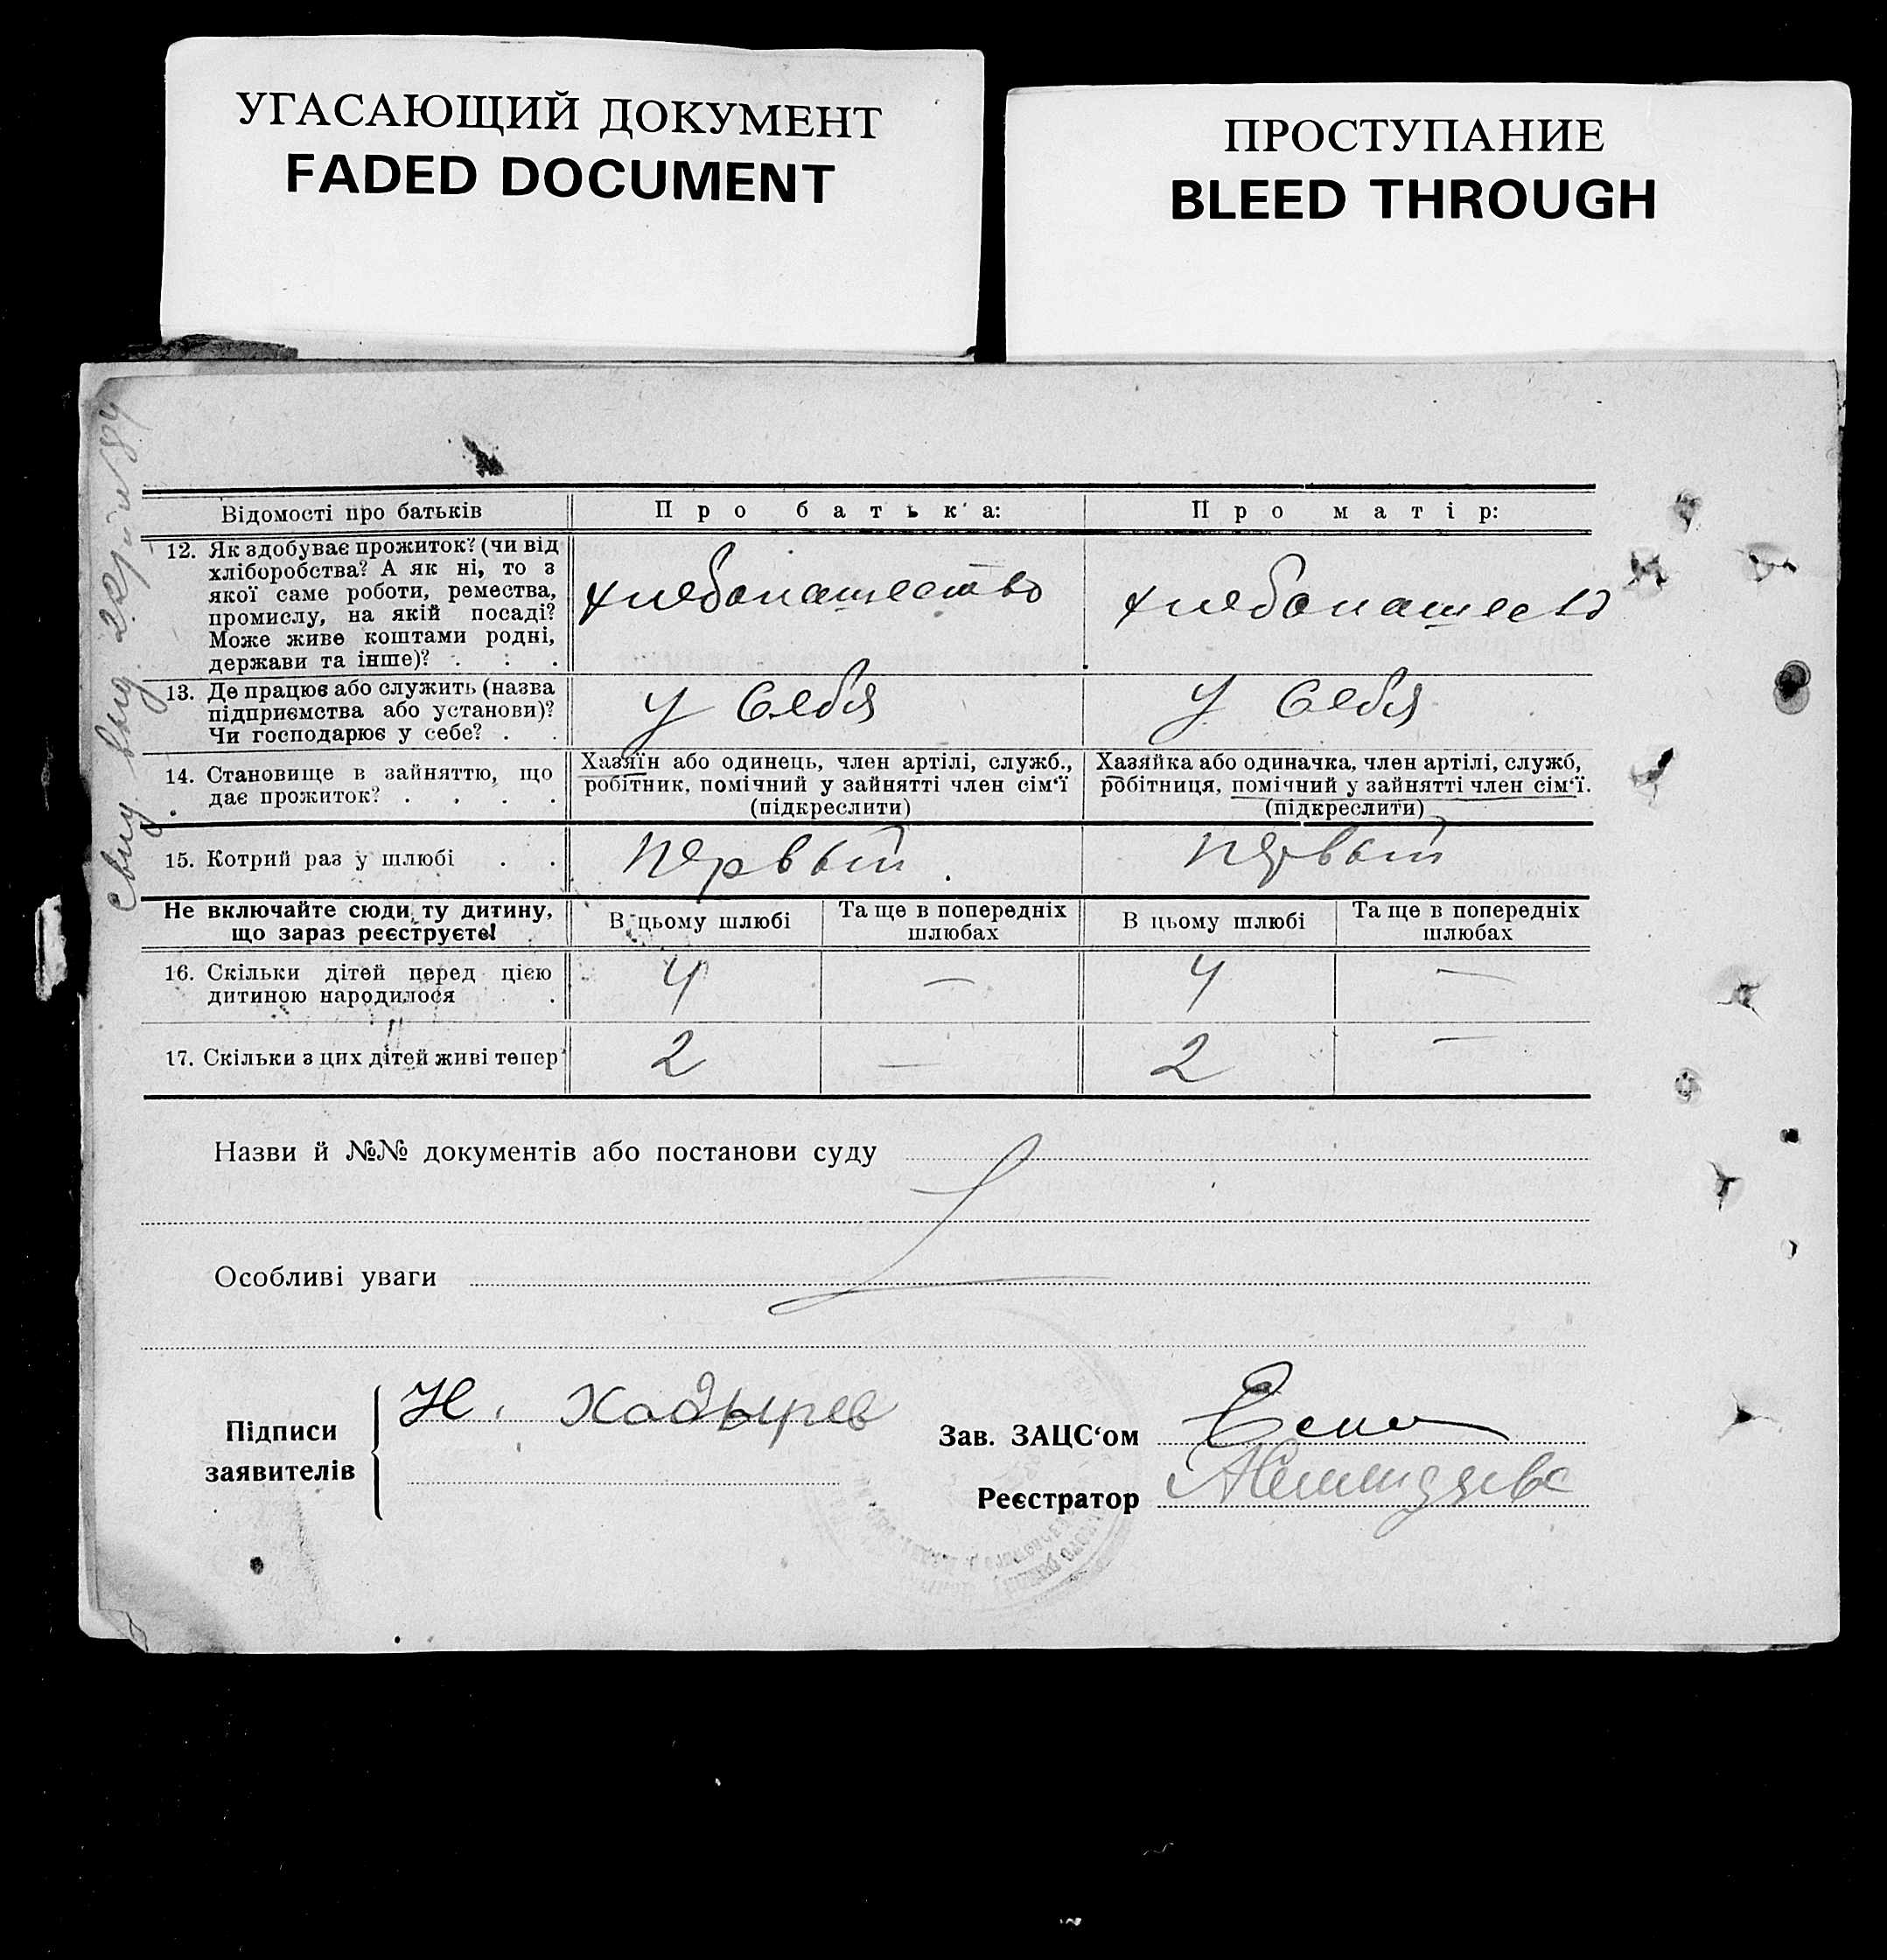 УГАСАЮЩИЙ ДОКУМЕНТ
FADED DOCUMENT
ПРОСТУПАНИЕ
BLEED THROUGH
Відомості про батьків
Про батька:
Про матір:
12. Як здобуває прожиток? (чи від
хліборобства? А як ні, то з
якої саме роботи, ремества,
промислу, на якій посаді?
Може живе коштами родні,
держави та інше)? . : .
хлебопашество
хлебопашест
13. Де працює або служить (назва
підприємства або установи)?
Чи господарює у себе? . .
у себя
у себя
14. Становище в зайняттю, що
дає прожиток? . . . .
Хазяїн або одинець, член артілі, служб.,
робітник, помічний у зайнятті член сім‘ї
(підкреслити)
Хазяйка або одиначка, член артілі, служб,
робітниця, помічний у зайнятті член сім‘ї.
(підкреслити)
15. Котрий раз у шлюбі . .
первый.
первый
Не включайте сюди ту дитину,
що зараз реєструєте!
В цьому шлюбі
Та ще в попередніх
шлюбах
В цьому шлюбі
Та ще в попередніх
шлюбах
16. Скільки дітей перед цією
дитиною народилося .
4 — 4 —
17. Скільки з цих дітей живі тепер
2 — 2 —
Назви й №№ документів або постанови суду
Особливі уваги
Підписи
заявителів
Н. Хадырев
Зав. ЗАЦС‘ом
Реєстратор